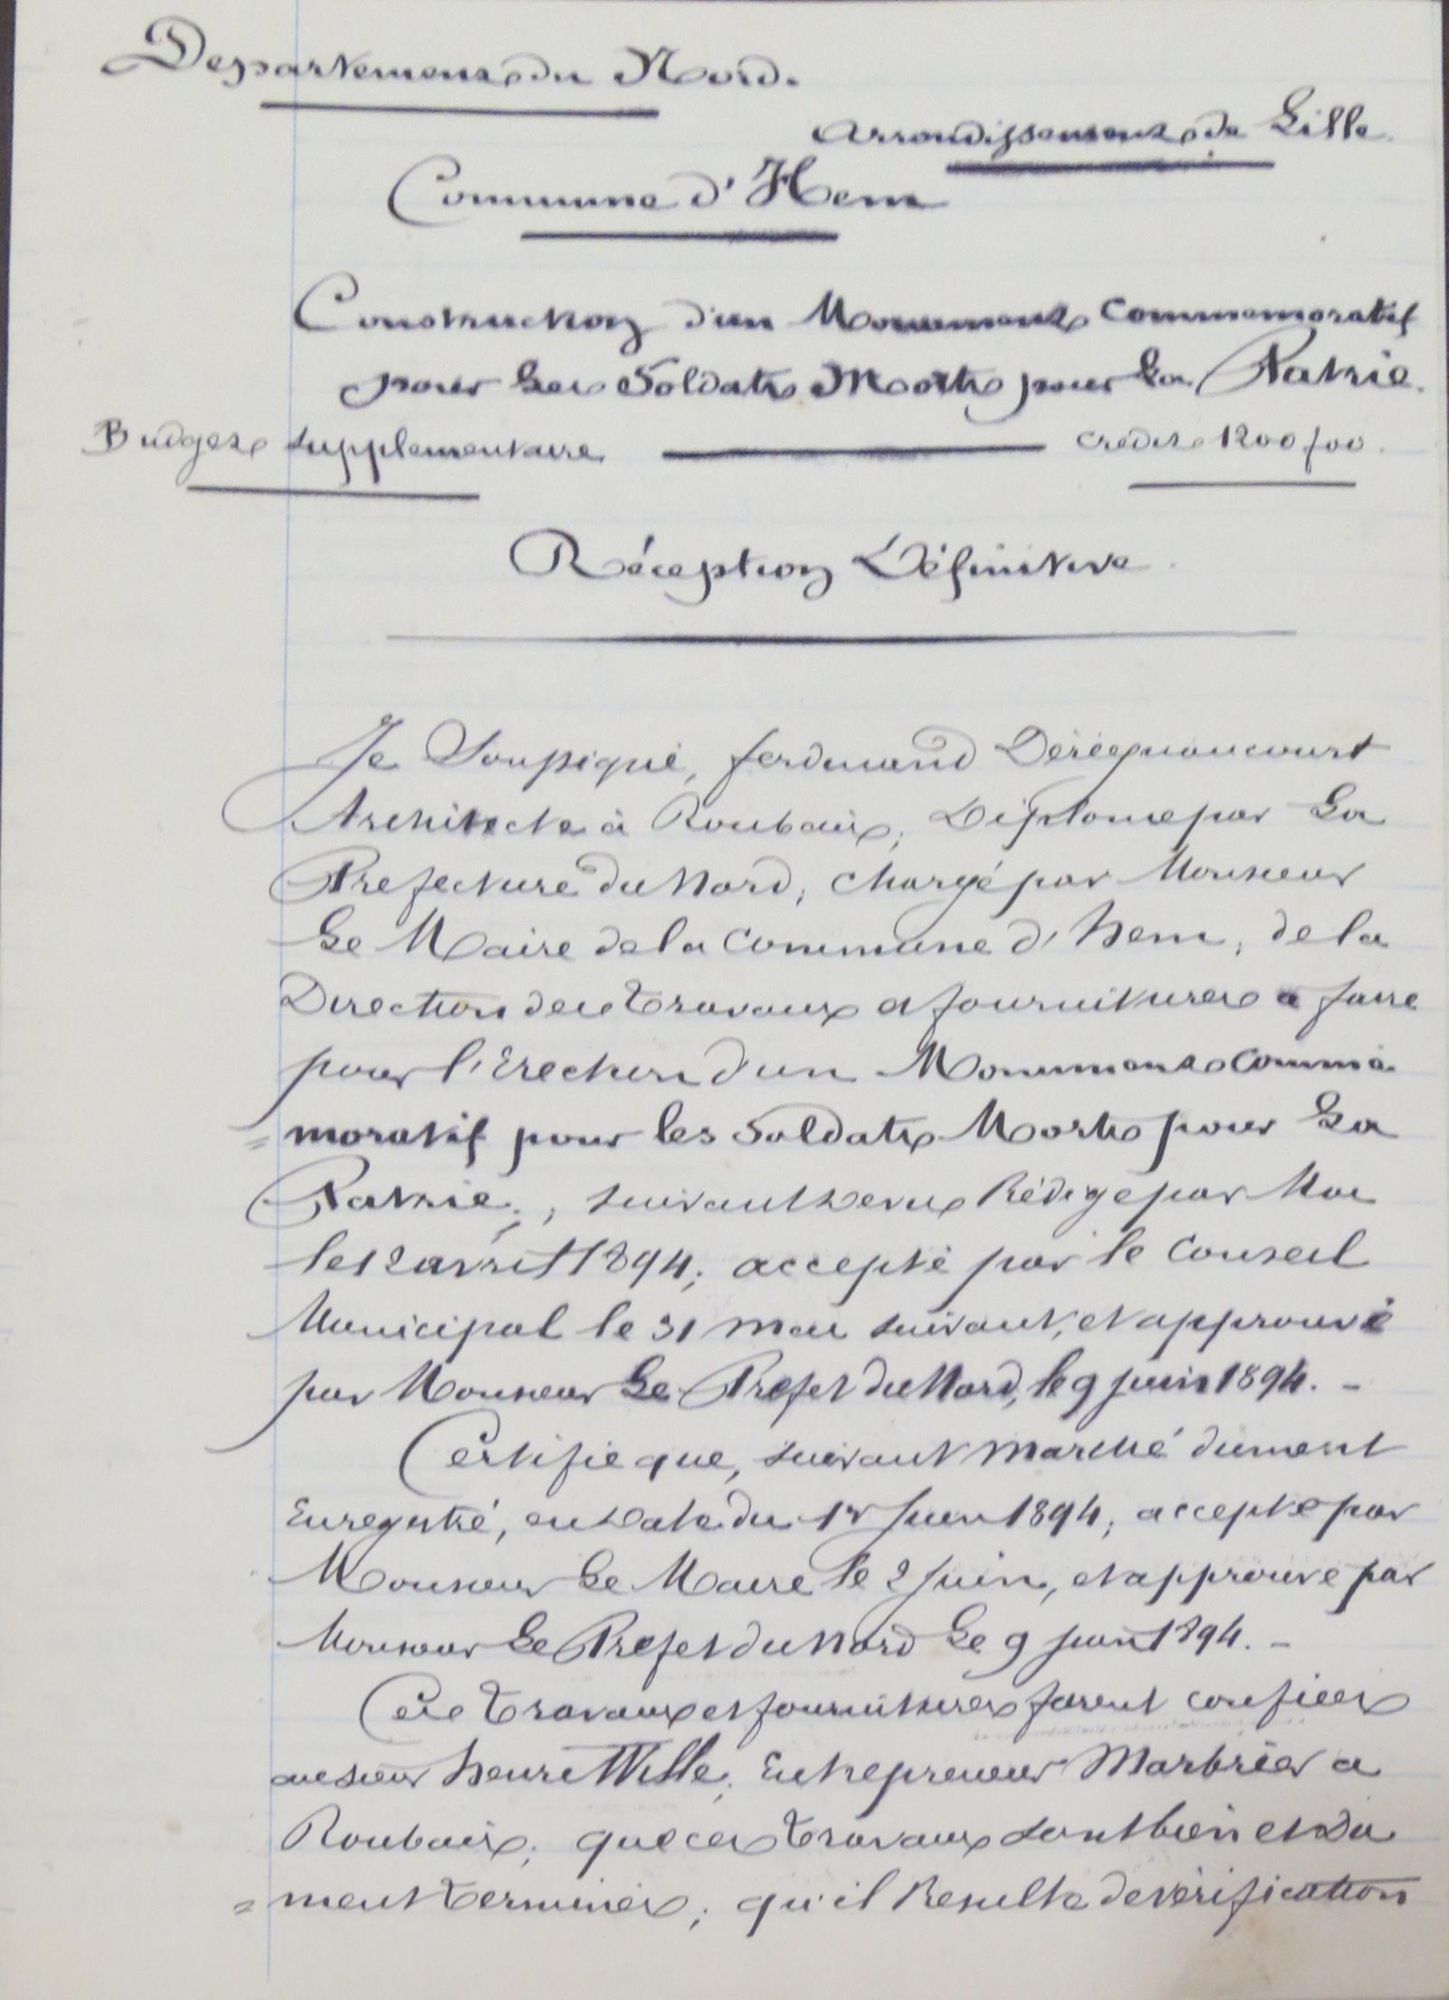 Departement du Nord.
Arrondissement de Lille.
Commune d'Hem
Construction d'un Monument Commemoratif
pour Les Soldats Morts pour La Patrie.
Budget supplementaire crédit 1200f00.
Réception Définitive.
Je Soussigné, ferdinand Dérégnaucourt
Architecte à Roubaix, Diplome par La
Prefecture du Nord, chargé par Monsieur
Le Maire de la Commune d'hem, de la
Direction des Travaux et fournitures a faire
pour l'Erection d'un Monument Commé
= moratif pour les Soldats Morts pour La
Patrie, suivant Devis Rédige par Moi
le 12 avril 1894, accepté par le Conseil
Municipal le 31 mai suivant, et approuvé
par Monsieur Le Prefet du Nord, le 9 juin 1894. -
Certifie que, suivant Marché dument
Enregistré, en Date du 1er Juin 1894, accepté par
Monsieur Le Maire le 2 Juin, et approuvé par
Monsieur Le Prefet du Nord Le 9 juin 1894. -
Ces Travaux et fournitures furent confiées
au sieur henri Wille, Entrepreneur Marbrier a
Roubaix, que ces Travaux sont bien et Du
= ment Terminés, qu'il Resulte de vérification